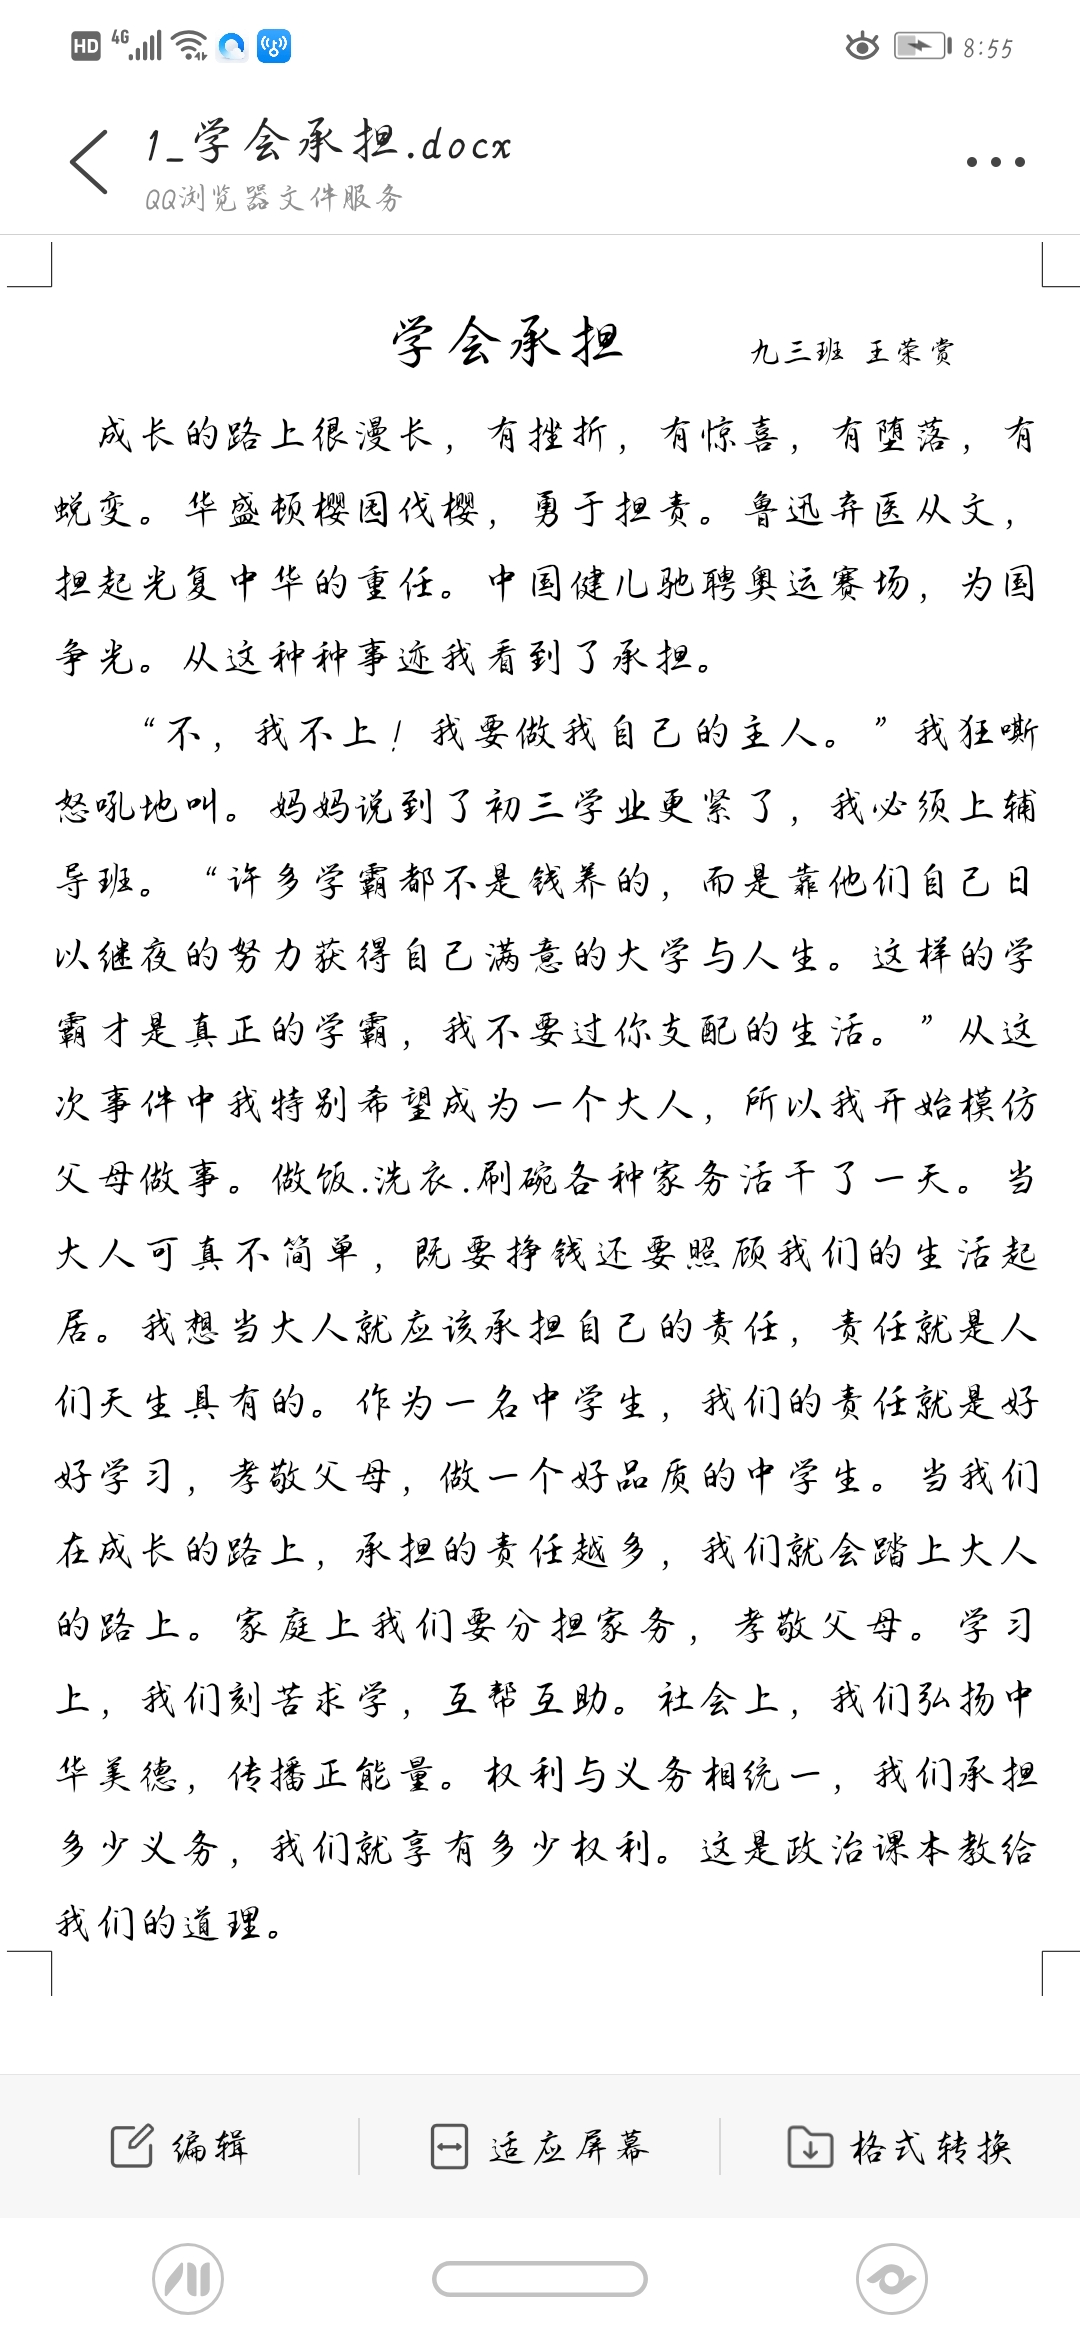 HD 4G 8:55
1_学会承担.docx
QQ浏览器文件服务
学会承担 九三班 王荣赏
成长的路上很漫长，有挫折，有惊喜，有堕落，有
蜕变。华盛顿樱园伐樱，勇于担责。鲁迅弃医从文，
担起光复中华的重任。中国健儿驰聘奥运赛场，为国
争光。从这种种事迹我看到了承担。
“不，我不上！我要做我自己的主人。”我狂嘶
怒吼地叫。妈妈说到了初三学业更紧了，我必须上辅
导班。“许多学霸都不是钱养的，而是靠他们自己日
以继夜的努力获得自己满意的大学与人生。这样的学
霸才是真正的学霸，我不要过你支配的生活。”从这
次事件中我特别希望成为一个大人，所以我开始模仿
父母做事。做饭.洗衣.刷碗各种家务活干了一天。当
大人可真不简单，既要挣钱还要照顾我们的生活起
居。我想当大人就应该承担自己的责任，责任就是人
们天生具有的。作为一名中学生，我们的责任就是好
好学习，孝敬父母，做一个好品质的中学生。当我们
在成长的路上，承担的责任越多，我们就会踏上大人
的路上。家庭上我们要分担家务，孝敬父母。学习
上，我们刻苦求学，互帮互助。社会上，我们弘扬中
华美德，传播正能量。权利与义务相统一，我们承担
多少义务，我们就享有多少权利。这是政治课本教给
我们的道理。
编辑 适应屏幕 格式转换